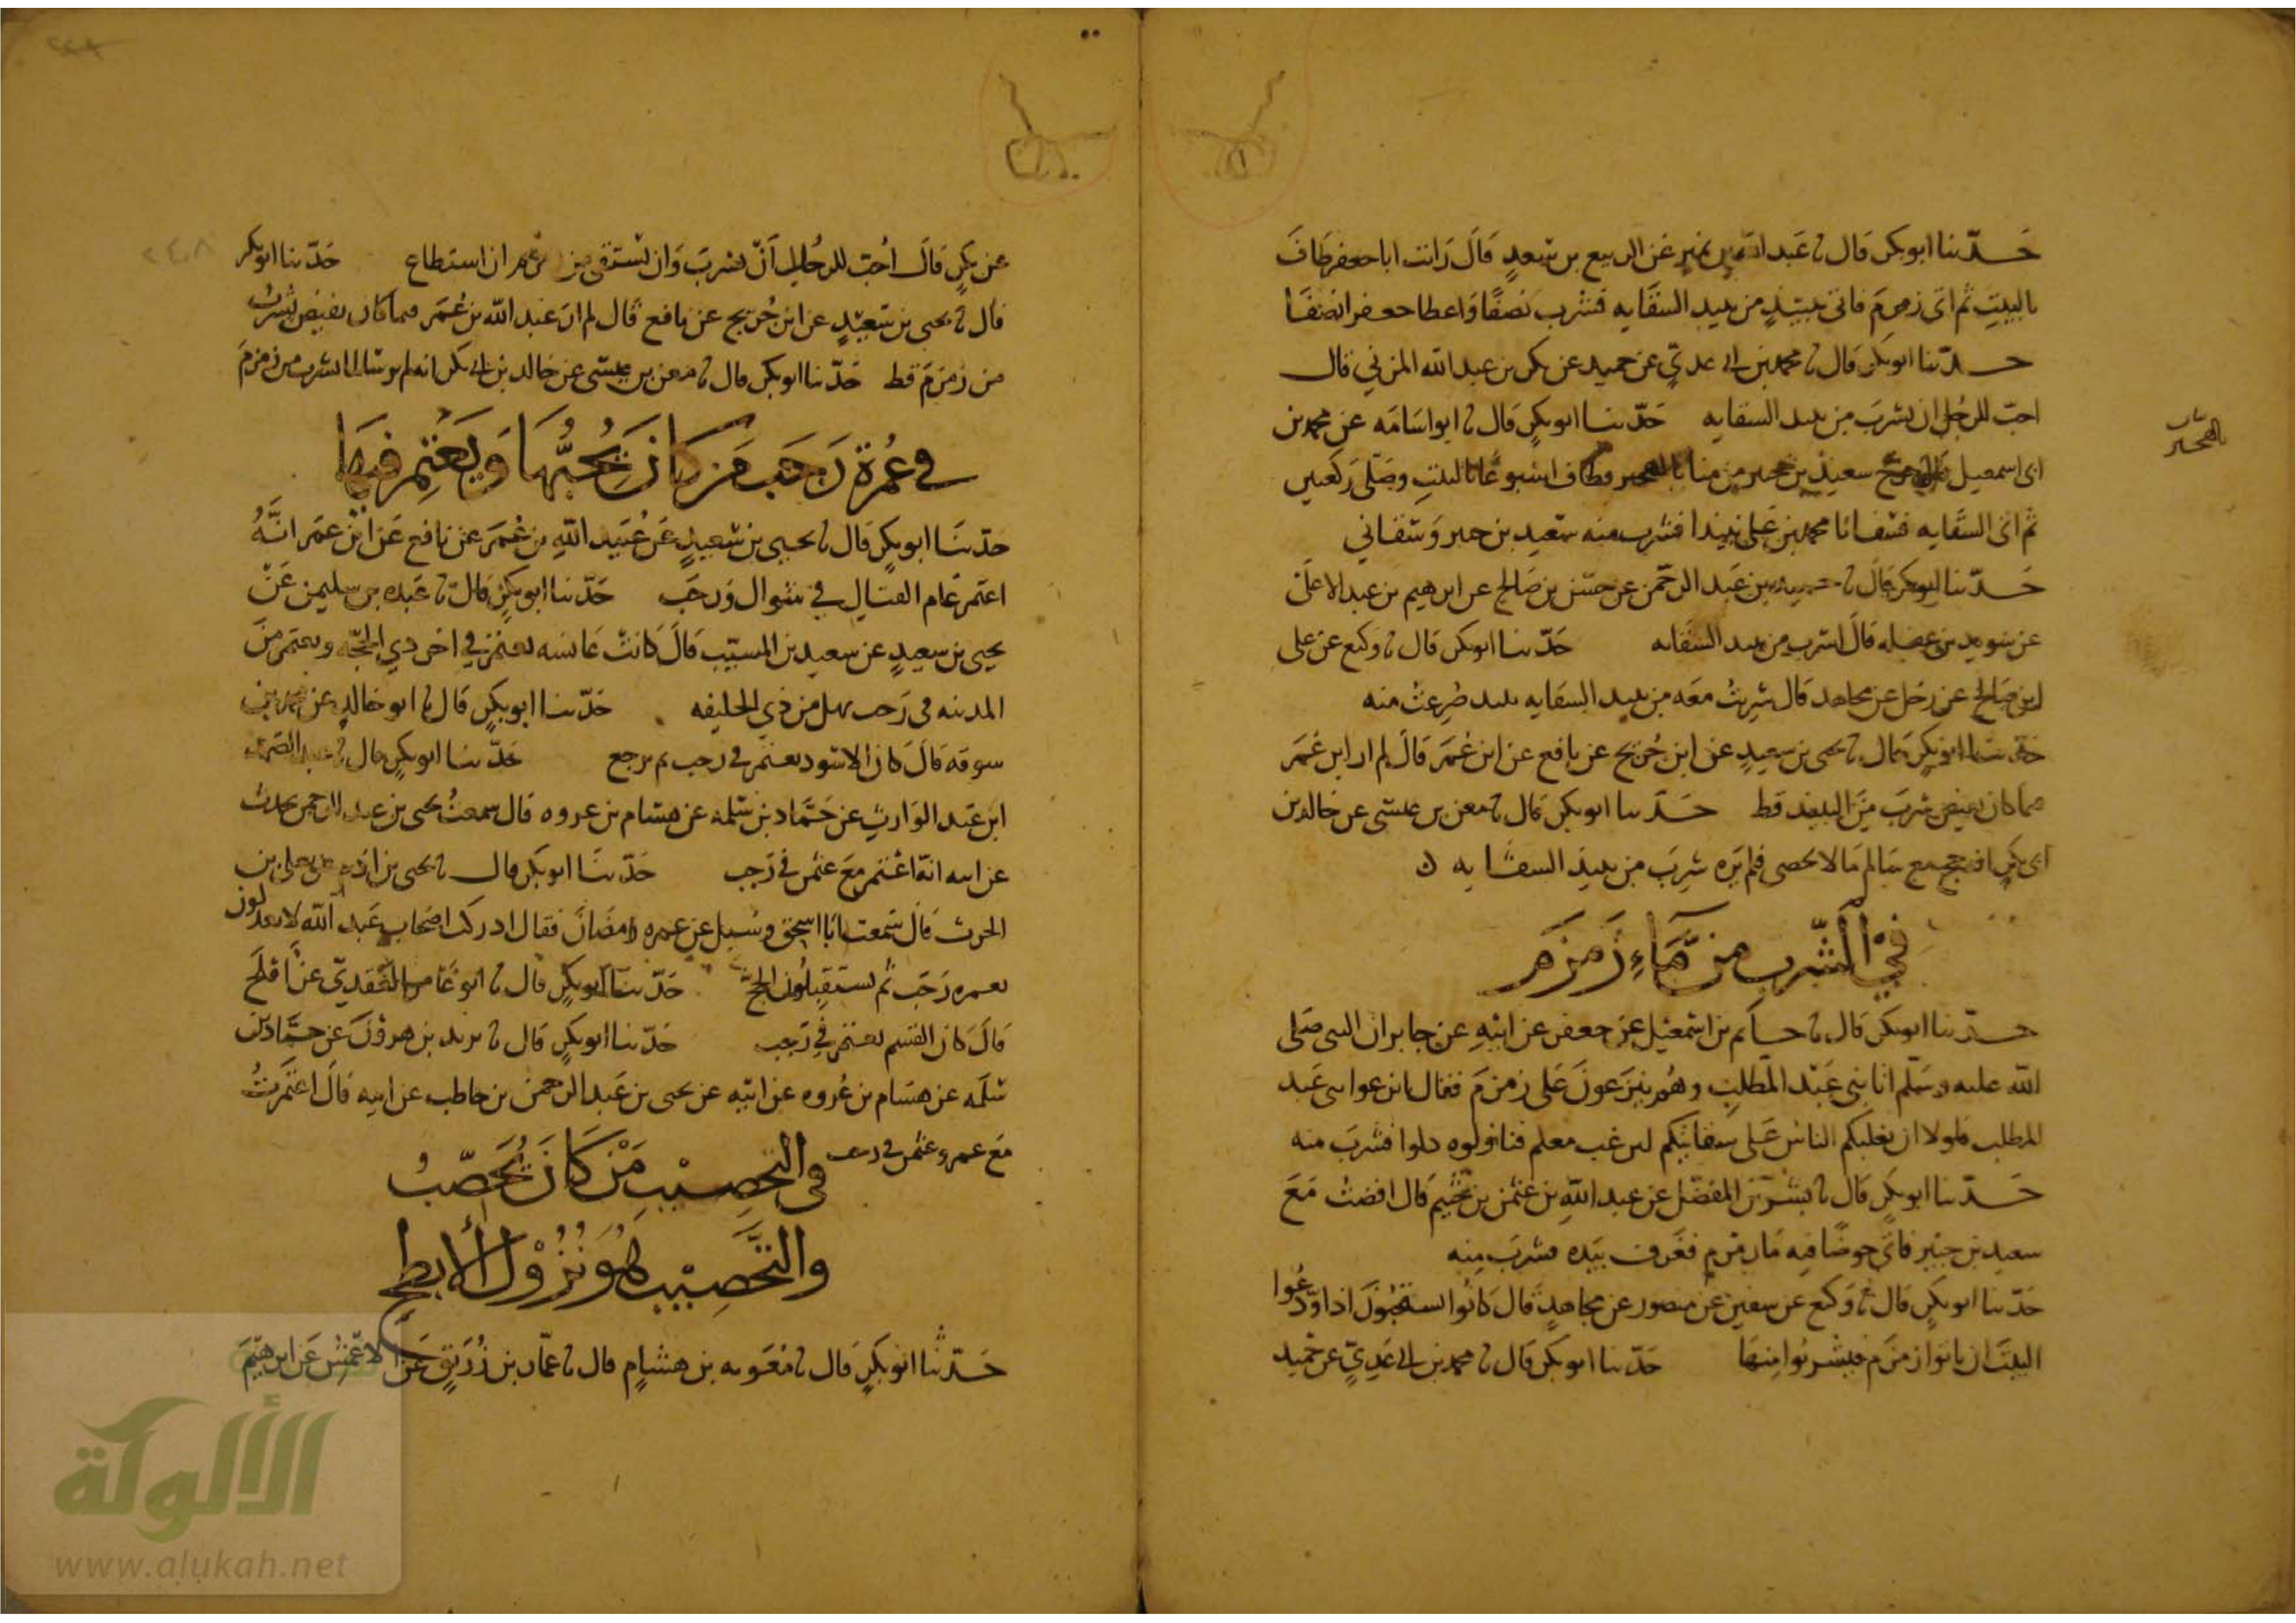 حدثنا ابو بكر قال نا عبد الله بن نمير عن الربيع بن سعد قال رايت ابا جعفر طاف
بالبيت ثم اتى زمزم فاتى بنبيذ من نبيذ السقايه فشرب نصفا واعطا جعفرا نصفا
حدثنا ابو بكر قال نا محمد بن ابي عدي عن حميد عن بكر بن عبد الله المزني قال
احب للرجل ان يشرب من نبيذ السقايه حدثنا ابو بكر قال نا ابو اسامه عن محمد بن
ابي اسمعيل سعيد بن جبير من منا وطاف اسبوعا بالبيت وصلى ركعتين
ثم اتى السقايه فسقانا محمد بن علي نبيذا فشرب منه سعيد بن جبير وسقاني
حدثنا ابو بكر قال نا حميد بن عبد الرحمن عن حسن بن صالح عن ابرهيم بن عبد الاعلى
عن سويد بن غفله قال اشرب من نبيذ السقايه حدثنا ابو بكر قال نا وكيع عن علي
ابن صالح عن رجل عن مجاهد قال شربت معه من نبيذ السقايه منه
حدثنا ابو بكر قال نا يحيى بن سعيد عن ابن جريج عن نافع عن ابن عمر قال لم ار ابن عمر
مما كان يفيض شرب من النبيذ قط حدثنا ابو بكر قال نا معن بن عيسى عن خالد بن
ابي بكر انه حج مع سالم ما لا يحصى فلم يره شرب من نبيذ السقايه
في الشرب من ماء زمزم
حدثنا ابو بكر قال نا حاتم بن اسمعيل عن جعفر عن ابيه عن جابر ان النبي صلى
الله عليه وسلم اتا بني عبد المطلب وهم ينزعون على زمزم فقال انزعوا بني عبد
المطلب فلولا ان يغلبكم الناس على سقايتكم لنزعت معكم فناولوه دلوا فشرب منه
حدثنا ابو بكر قال نا بشر بن المفضل عن عبد الله بن عثمن بن خثيم قال افضت مع
سعيد بن جبير فاتى حوضا فيه ما زمزم فغرف بيده فشرب منه
حدثنا ابو بكر قال نا وكيع عن سفين عن منصور عن مجاهد قال كانوا يستحبون اذا ودعوا
البيت ان ياتوا زمزم فيشربوا منها حدثنا ابو بكر قال نا محمد بن ابي عدي عن حميد
عن بكر قال احب للرجل ان يشرب وان يستقي من زمزم ان استطاع حدثنا ابو بكر
قال نا يحيى بن سعيد عن ابن جريج عن نافع قال لم ار عبد الله بن عمر مما كان يفيض يشرب
من زمزم قط حدثنا ابو بكر قال نا معن بن عيسى عن خالد بن ابي بكر انه لم ير سالما يشرب من زمزم
في عمرة رجب من كان يحبها ويعتمر فيها
حدثنا ابو بكر قال نا يحيى بن سعيد عن عبيد الله بن عمر عن نافع عن ابن عمر انه
اعتمر عام القتال في شوال ورجب حدثنا ابو بكر قال نا عبده بن سليمن عن
يحيى بن سعيد عن سعيد بن المسيب قال كانت عائشه تعتمر في اخر ذي الحجه وتعتمر من
المدينه في رجب تهل من ذي الحليفه حدثنا ابو بكر قال نا ابو خالد عن محمد بن
سوقه قال كان الاسود يعتمر في رجب ثم يرجع حدثنا ابو بكر قال نا عبد الصمد
ابن عبد الوارث عن حماد بن سلمه عن هشام بن عروه قال سمعت يحيى بن عبد الرحمن يحدث
عن ابيه انه اعتمر مع عثمن في رجب حدثنا ابو بكر قال نا يحيى بن ادم عن يعلى بن
الحرث قال سمعت ابا اسحق وسيل عن عمره رمضان فقال ادركت اصحاب عبد الله لا يعدلون
بعمره رجب ثم يستقبلون الحج حدثنا ابو بكر قال نا ابو عامر العقدي عن افلح
قال كان القسم يعتمر في رجب حدثنا ابو بكر قال نا يزيد بن هرون عن حماد بن
سلمه عن هشام بن عروه عن ابيه عن يحيى بن عبد الرحمن بن حاطب عن ابيه قال اعتمرت
مع عمر وعثمن في رجب
في التحصيب من كان يحصب
والتحصيب هو نزول الأبطح
حدثنا ابو بكر قال نا معويه بن هشام قال نا عمار بن زريق عن الاعمش عن ابرهيم
الألوكة
www.alukah.net